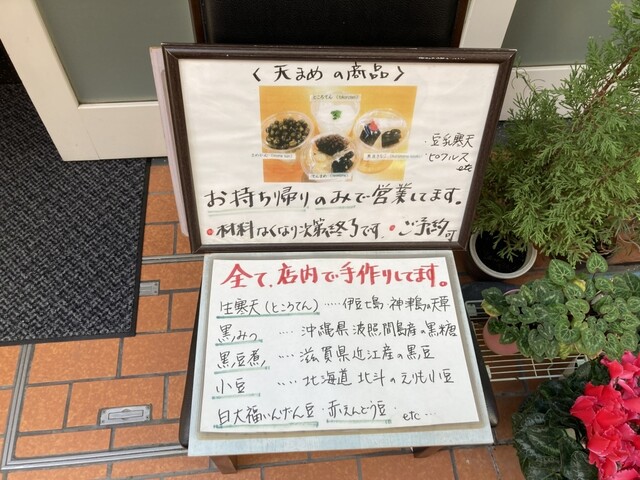 〈天まめの商品〉
ところてん
豆乳寒天
ピカルス
etc
お持ち帰りのみで営業してます。
・材料なくなり次第終了です。・ご予約可
全て、店内で手作りしてます。
生寒天(ところてん)‥‥伊豆七島 神津島の天草
黒みつ ‥‥ 沖縄県 波照間島産の黒糖
黒豆煮 ‥‥ 滋賀県近江産の黒豆
小豆 ‥‥ 北海道 北斗のえりも小豆
白大福いんげん豆・赤えんどう豆・etc…